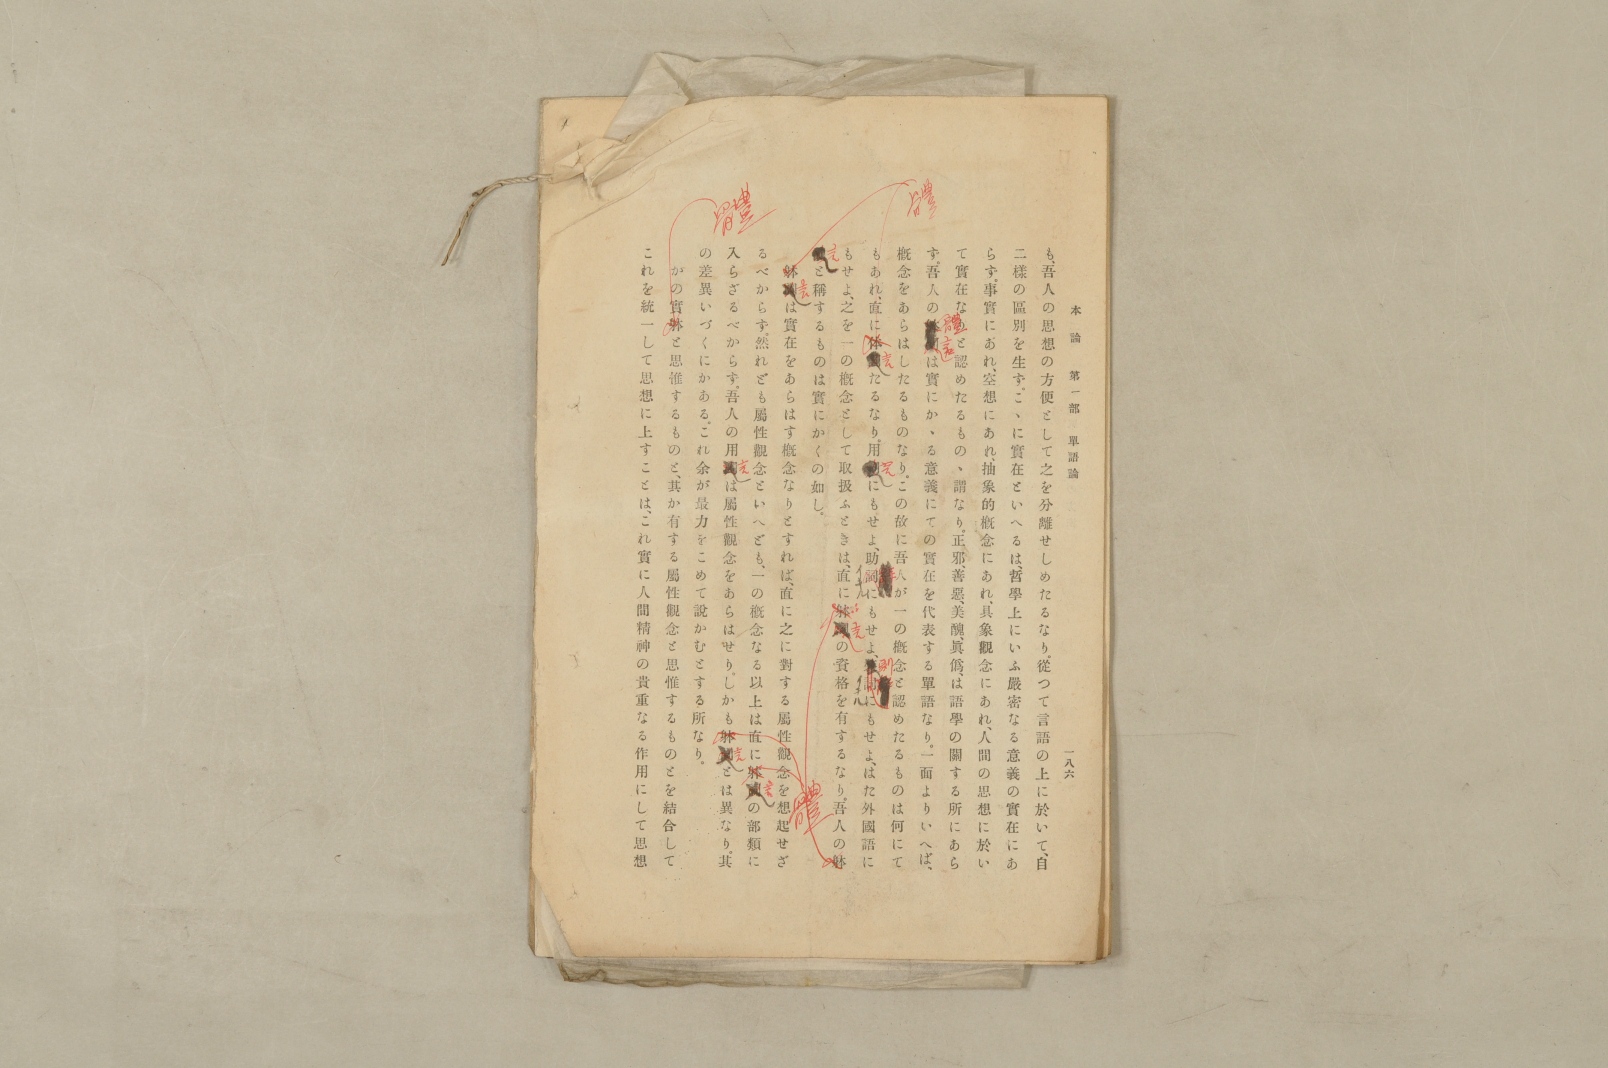 本論 第一部 單語論 一八六
も、吾人の思想の方便として之を分離せしめたるなり。從つて言語の上に於いて、自
二樣の區別を生ず。こゝに實在といへるは、哲學上にいふ嚴密なる意義の實在にあ
らず。事實にあれ、空想にあれ、抽象的槪念にあれ、具象觀念にあれ、人間の思想に於い
て實在なりと認めたるものゝ謂なり。正邪、善惡、美醜、眞僞、は語學の關する所にあら
ず。吾人の體言は實にかゝる意義にての實在を代表する單語なり。一面よりいへば、
槪念をあらはしたるものなり。この故に吾人が一の槪念と認めたるものは何にて
もあれ、直に体言たるなり。用言にもせよ、助詞にもせよ、副詞にもせよ、はた外國語に
もせよ、之を一の槪念として取扱ふときは、直に躰言の資格を有するなり。吾人の躰
言と稱するものは實にかくの如し。
躰言は實在をあらはす槪念なりとすれば、直に之に對する屬性觀念を想起せざ
るべからず。然れども屬性觀念といへども、一の槪念なる以上は直に躰言の部類に
入らざるべからず。吾人の用言は屬性觀念をあらはせり。しかも躰言とは異なり。其
の差異いづくにかある。これ余が最力をこめて說かむとする所なり。
かの實躰と思惟するものと、其か有する屬性觀念と思惟するものとを結合して
これを統一して思想に上すことは、これ實に人間精神の貴重なる作用にして思想
體
體
體